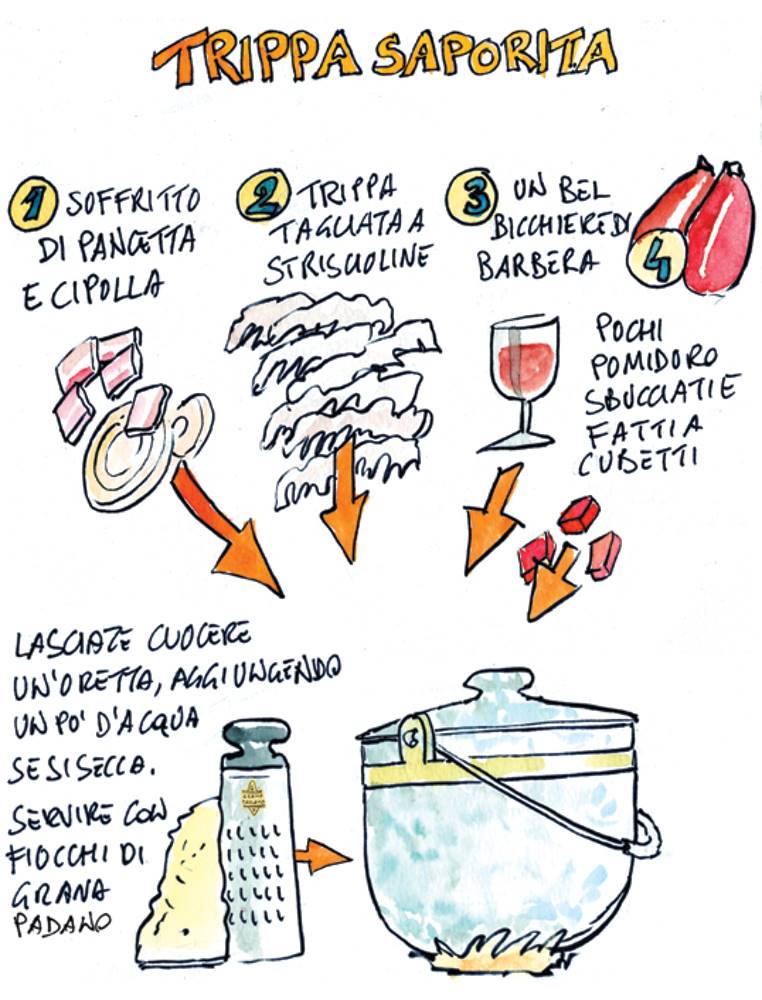 TRIPPA SAPORITA
1 SOFFRITTO
DI PANCETTA
E CIPOLLA
2 TRIPPA
TAGLIATA A
STRISCIOLINE
3 UN BEL
BICCHIERE DI
BARBERA
4
POCHI
POMIDORO
SBUCCIATI E
FATTI A
CUBETTI
LASCIATE CUOCERE
UN'ORETTA, AGGIUNGENDO
UN PO' D'ACQUA
SE SI SECCA.
SERVIRE CON
FIOCCHI DI
GRANA
PADANO